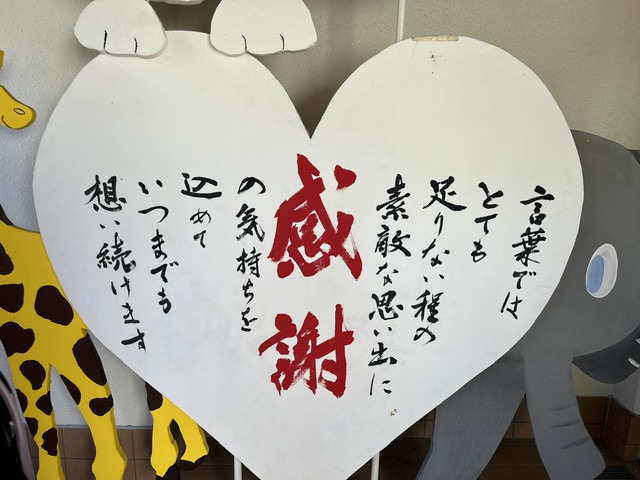 言葉では
とても
足りない程の
素敵な思い出に
感謝
の気持ちを
込めて
いつまでも
想い続けます